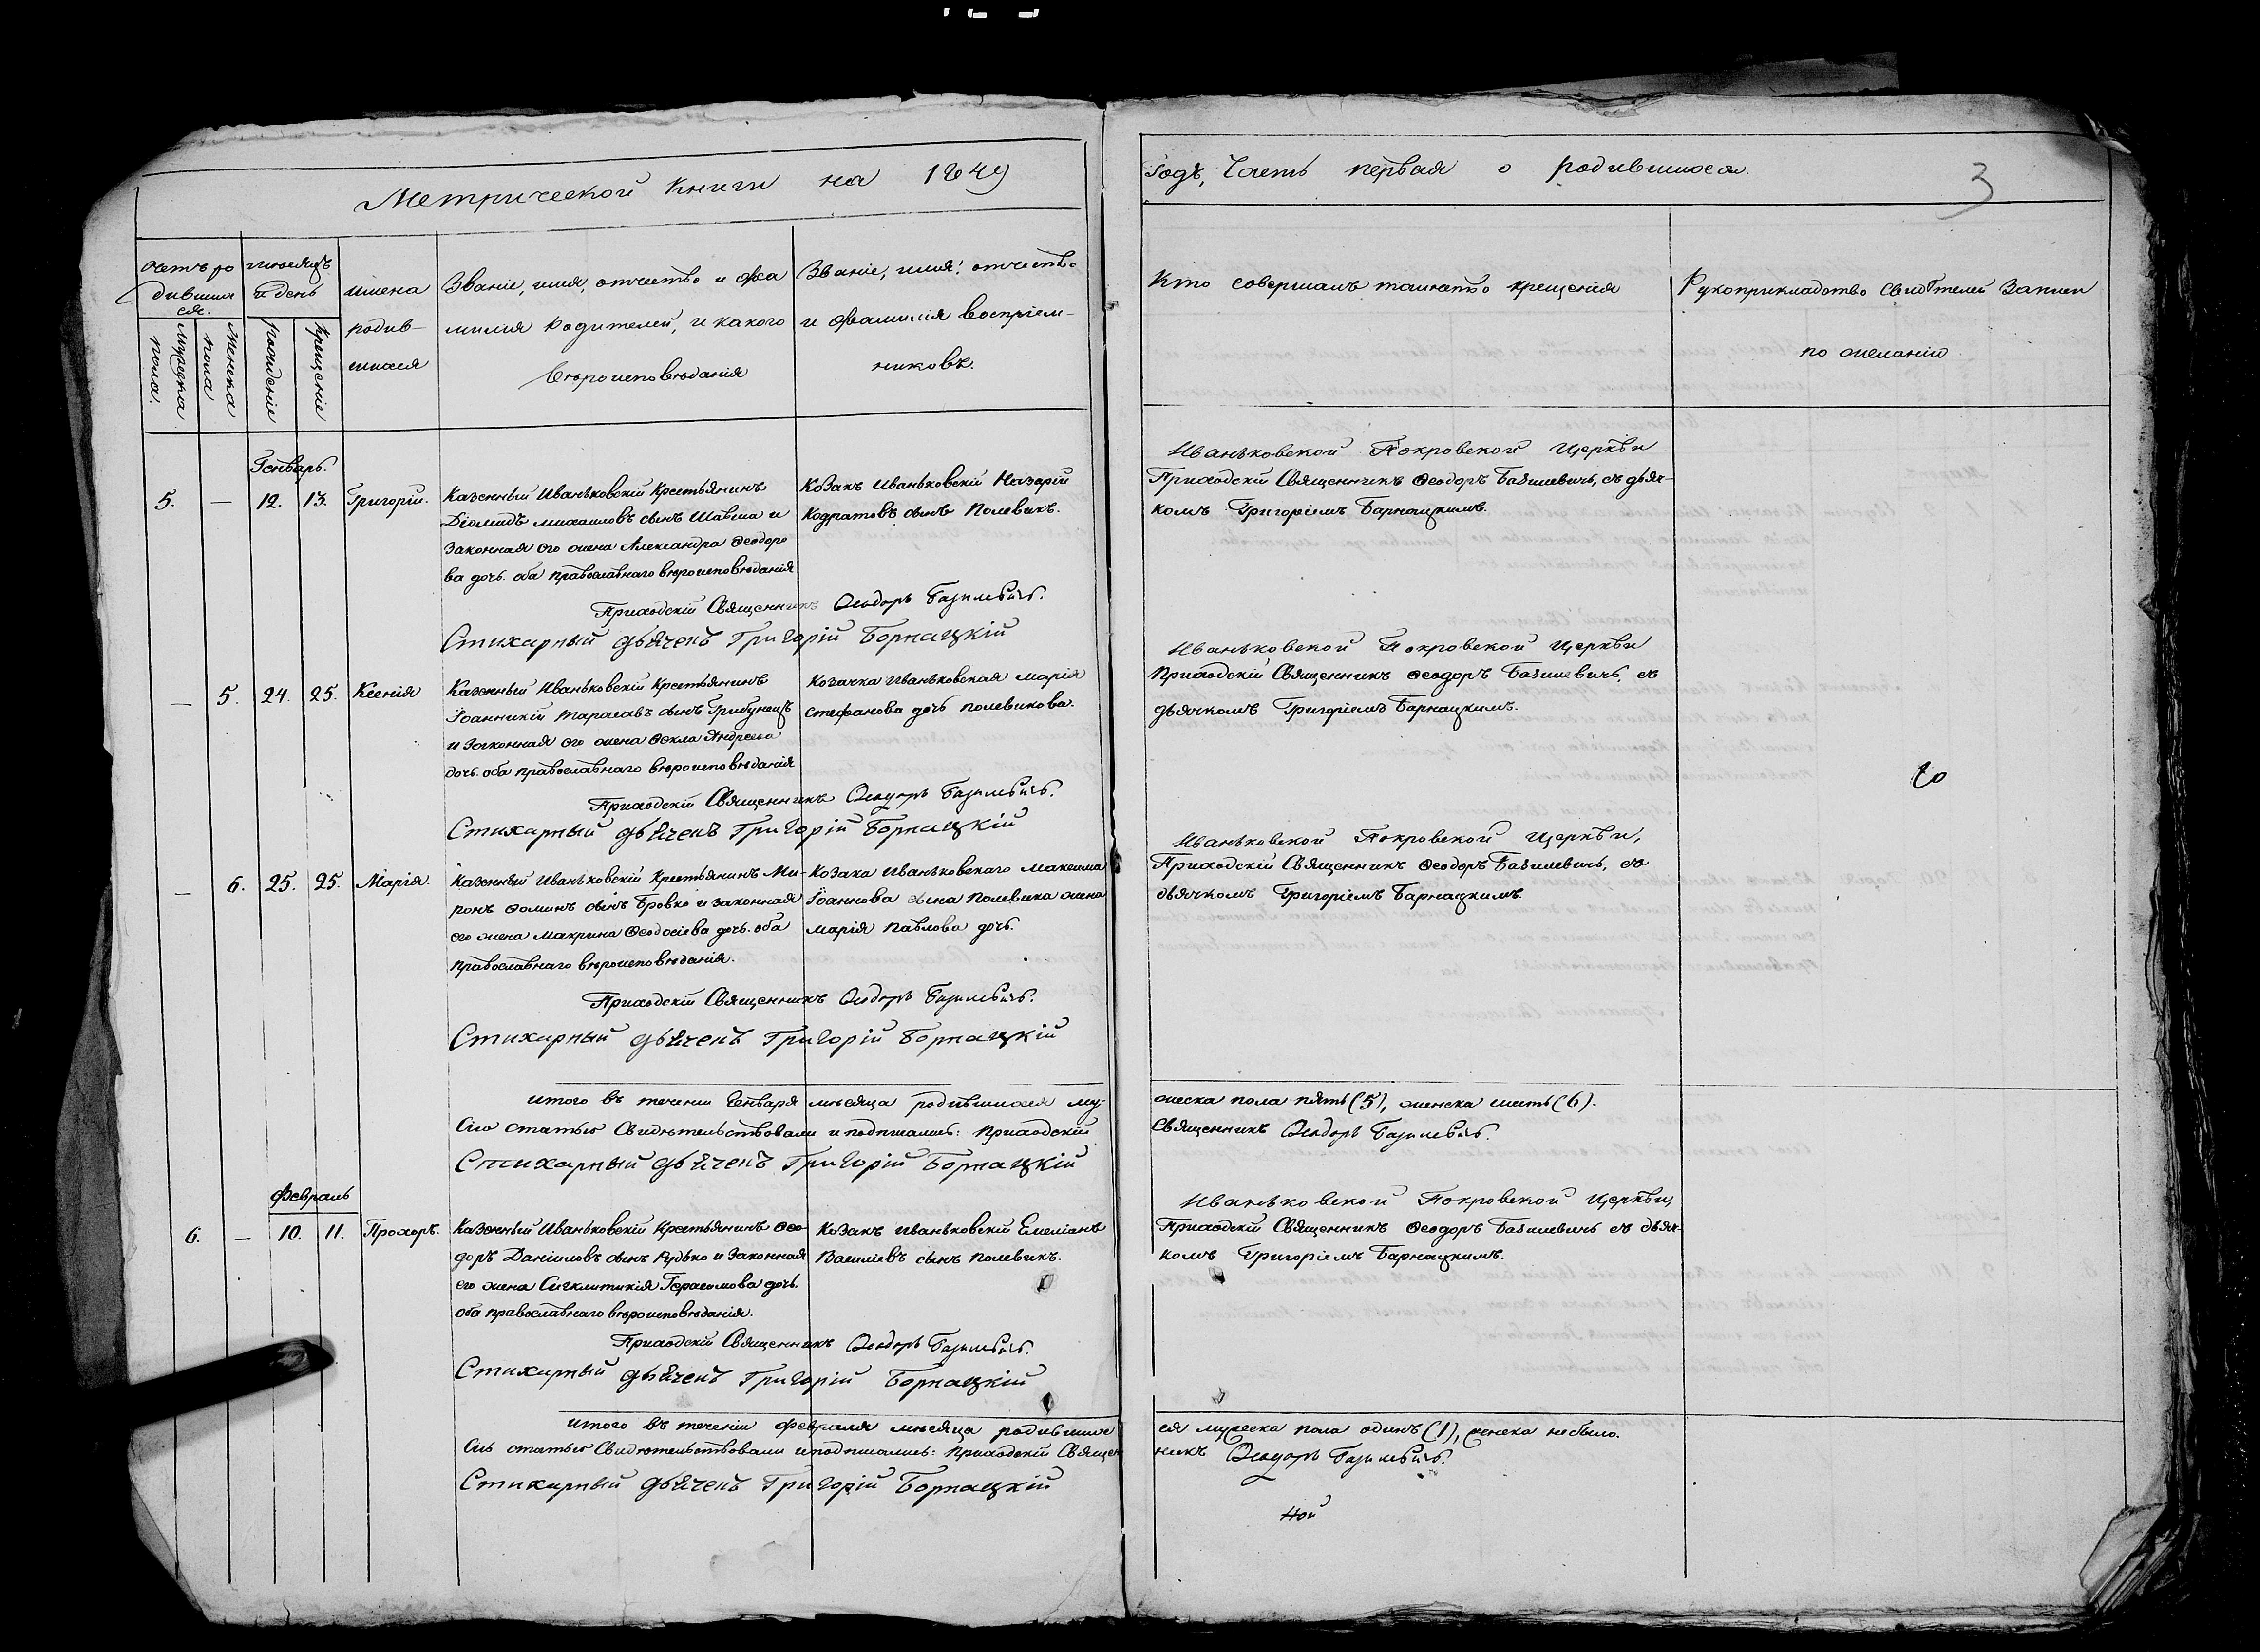 Метрической книги на 1849
Годъ, Часть первая о родившихся.
3
Счетъ ро
дивших
ся.
Мужеска
пола.
Женска
пола
Мѣсяцъ
и день
рожденіе
крещеніе
имена
родив-
шихся
Званіе, имя, отчество и фа
милія Родителей, и какого
вѣроисповѣданія
Званіе, имя, отчество
и фамилія воспріем-
никовъ.
Кто совершалъ таинство крещенія
Рукоприкладство свидѣтелей записи
по желанію
Генварь.
5. — 12. 13. Григорій.
Казенный Иваньковскій Крестьянинъ
Діомидъ Михаиловъ сынъ Шавша и
Законная его жена Александра Феодоро
ва дочь. оба православнаго вѣроисповѣданія
Козакъ Иваньковскій Назарій
Кодратовъ сынъ Полевикъ.
Иваньковской Покровской Церкви
Приходскій Священникъ Феодоръ Базилевичь, съ дьяч-
комъ Григоріемъ Барнацкимъ.
Приходскій Священникъ Феодоръ Базилевичъ.
Стихарный дьячекъ Григорій Борнацкій
— 5. 24. 25. Ксенія
Казенный Иваньковскій Крестьянинъ
Іоанникій Тарасовъ сынъ Грибунецъ
и Законная его жена Фекла Андреева
дочь. оба православнаго вѣроисповѣданія
Козачка Иваньковская Марія
Стефанова дочь Полевикова.
Иваньковской Покровской Церкви
Приходскій Священникъ Феодоръ Базилевичь, съ
дьячкомъ Григоріемъ Барнацкимъ.
Приходскій Священникъ Феодоръ Базилевичъ.
Стихарный дьячекъ Григорій Борнацкій
— 6. 25. 25. Марія.
Казенный Иваньковскій Крестьянинъ Ми-
ронъ Фоминъ сынъ Бровко и законная
его жена Макрина Феодосіева дочь. оба
православнаго вѣроисповѣданія.
Козака Иваньковскаго Максима
Іоаннова сына Полевика жена
Марія Павлова дочь.
Иваньковской Покровской Церкви,
Приходскій Священникъ Феодоръ Базилевичь, съ
дьячкомъ Григоріемъ Барнацкимъ.
Приходскій Священникъ Феодоръ Базилевичъ.
Стихарный дьячекъ Григорій Борнацкій
итого въ теченіи Генваря мѣсяца родившихся му-
жеска пола пять (5), женска шесть (6).
Сію статью Свидѣтельствовали и подписались: Приходскій
Священникъ Феодоръ Базилевичъ.
Стихарный дьячекъ Григорій Борнацкій
Февраль
6. — 10. 11. Прохоръ.
Казенный Иваньковскій Крестьянинъ Фео-
доръ Даніиловъ сынъ Рудько и Законная
его жена Сигклитикія Герасимова дочь.
оба православнаго вѣроисповѣданія.
Козакъ Иваньковскій Емеліанъ
Василіевъ сынъ Полевикъ.
Иваньковской Покровской Церкви,
Приходскій Священникъ Феодоръ Базилевичь съ дьяч-
комъ Григоріемъ Барнацкимъ.
Приходскій Священникъ Феодоръ Базилевичъ.
Стихарный дьячекъ Григорій Борнацкій
итого въ теченіи Февраля мѣсяца родивших
ся мужеска пола одинъ (1), женска небыло.
Сію статью Свидѣтельствовали и подписались: Приходскій Священ
никъ Феодоръ Базилевичъ.
Стихарный дьячекъ Григорій Борнацкій
ной